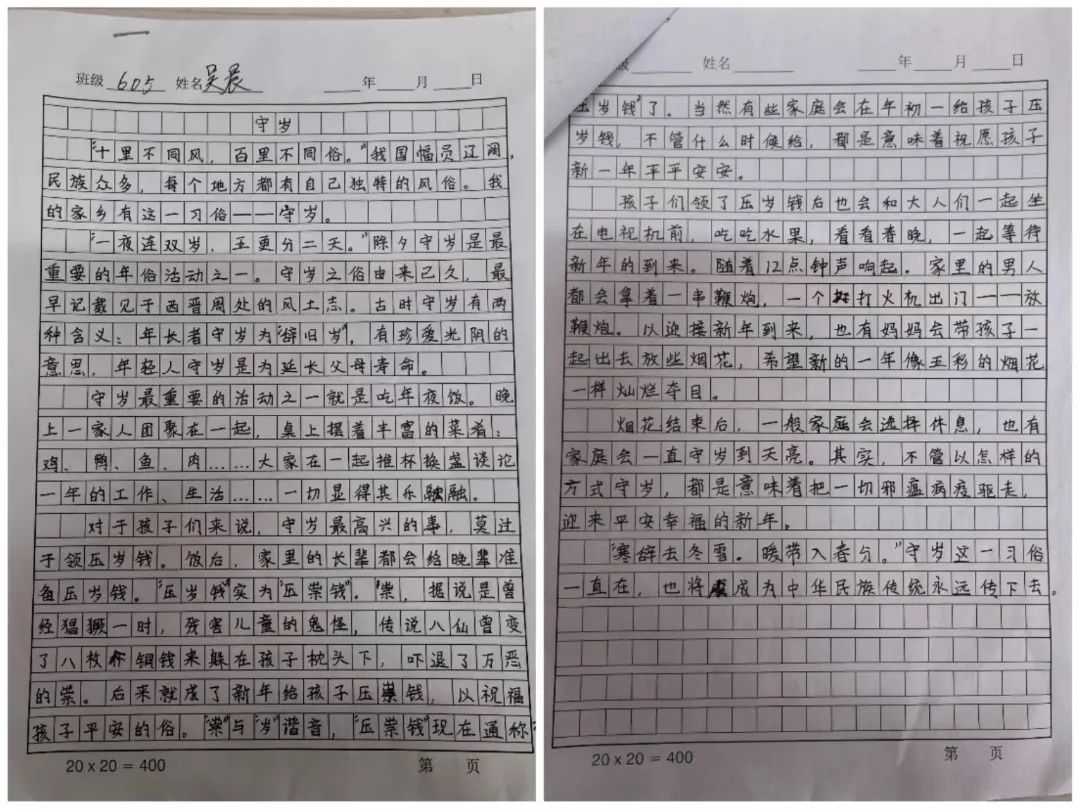 一
班级 605 姓名 吴晨 年 月 日
守岁
“十里不同风，百里不同俗。”我国幅员辽阔，
民族众多，每个地方都有自己独特的风俗。我
的家乡有这一习俗——守岁。
“一夜连双岁，五更分二天。”除夕守岁是最
重要的年俗活动之一。守岁之俗由来已久，最
早记载见于西晋周处的风土志。古时守岁有两
种含义：年长者守岁为“辞旧岁”，有珍爱光阴的
意思，年轻人守岁是为延长父母寿命。
守岁最重要的活动之一就是吃年夜饭。晚
上一家人团聚在一起，桌上摆着丰富的菜肴：
鸡、鸭、鱼、肉……大家在一起推杯换盏谈论
一年的工作、生活……一切显得其乐融融。
对于孩子们来说，守岁最高兴的事，莫过
于领压岁钱。饭后，家里的长辈都会给晚辈准
备压岁钱。“压岁钱”实为“压祟钱”。“祟，据说是曾
经猖獗一时，残害儿童的鬼怪，传说八仙曾变
了八枚铜钱来躲在孩子枕头下，吓退了万恶
的祟。后来就成了新年给孩子压祟钱，以祝福
孩子平安的俗。“祟”与“岁”谐音，“压祟钱”现在通称
20×20=400 第 页
级 姓名 年 月 日
压岁钱”了。当然有些家庭会在年初一给孩子压
岁钱，不管什么时候给，都是意味着祝愿孩子
新一年平平安安。
孩子们领了压岁钱后也会和大人们一起坐
在电视机前，吃吃水果，看看春晚，一起等待
新年的到来。随着12点钟声响起。家里的男人
都会拿着一串鞭炮，一个打火机出门——放
鞭炮。以迎接新年到来，也有妈妈会带孩子一
起出去放些烟花，希望新的一年像五彩的烟花
一样灿烂夺目。
烟花结束后，一般家庭会选择休息，也有
家庭会一直守岁到天亮。其实，不管以怎样的
方式守岁，都是意味着把一切邪瘟病疫驱走，
迎来平安幸福的新年。
“寒辞去冬雪。暖带入春分。”守岁这一习俗
一直在，也将成为中华民族传统永远传下去。
20×20=400 第 页